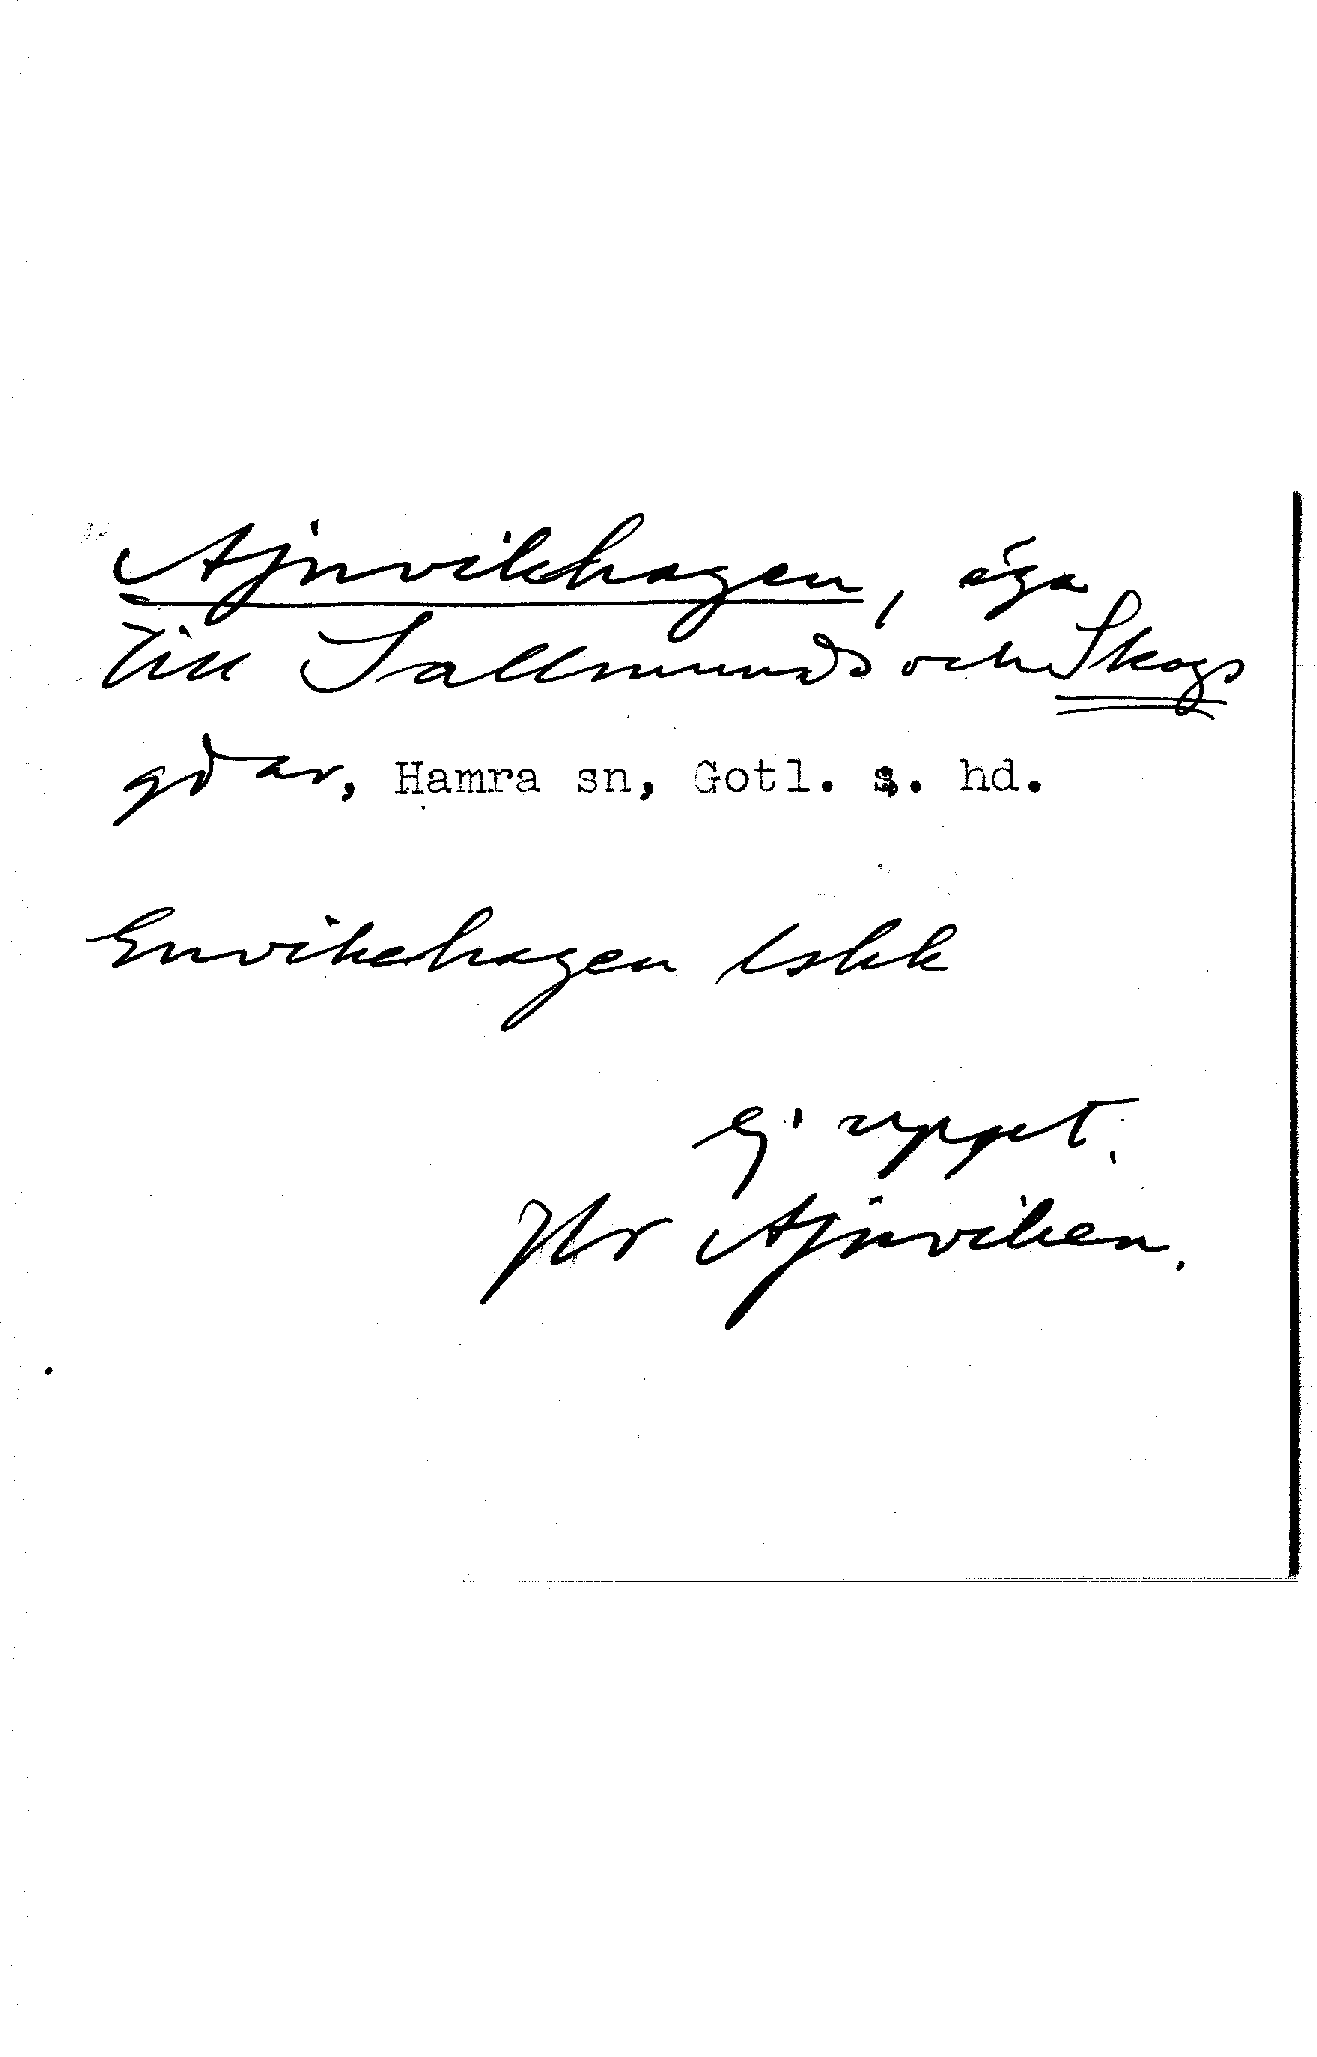 Ajnvikhagen, äga
till Sallmunds och Skogs
gdar, Hamra sn, Gotl. s. hd.
Envikehagen lskk
ej uppt.
Jfr Ajnviken.